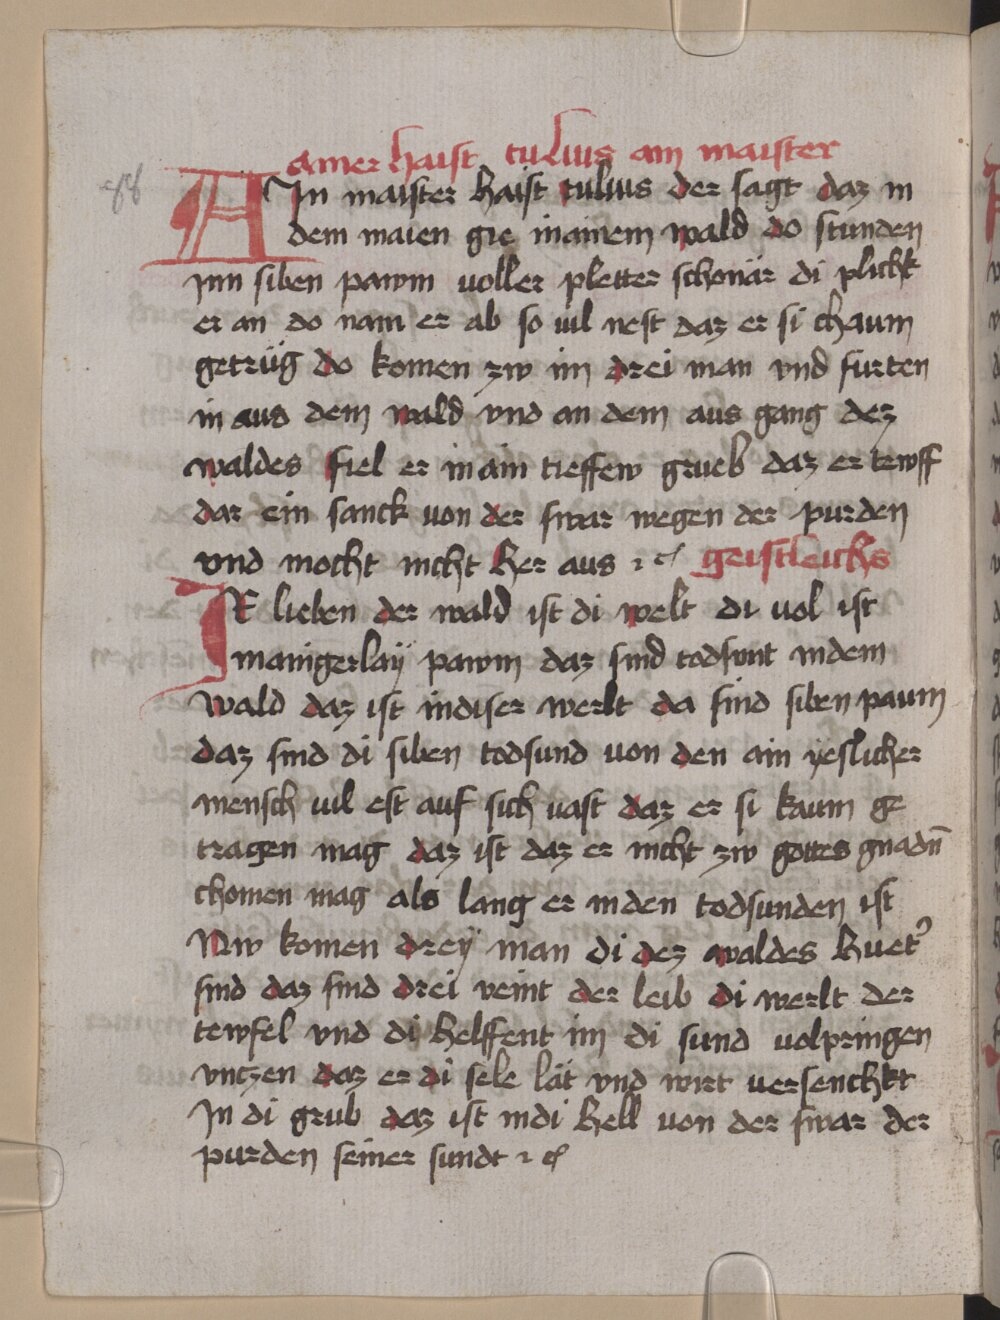 ainer haist tulius ain maister
AIn maister haist tulius der sagt daz in
dem maien gie in ainem wald do stunden
Inn siben pawm voller pletter schonär di plickt
er an do nam er ab so vil nest daz er si chaum
getrüg do komen zw im drei man vnd fürten
in aus dem wald vnd an dem aus gang dez
waldes fiel er in ain tieffew grueb daz er tewff
dar ein sanck von der swar wegen der purden
vnd mocht nicht her aus geistleichs
IR lieben der wald ist di welt di vol ist
manigerlaÿ pawm daz sind todsunt in dem
wald daz ist in diser werlt da sind siben paum
daz sind di siben todsund von den ain yeslicher
mensch vil est auf sich vast daz er si kaum ge
tragen mag daz ist daz er nicht zw gottes gnadn̄
chomen mag als lang er in den todsunden ist
Nw komen dreÿ man di dez waldes huet'
sind daz sind drei veint der leib di werlt der
tewfel vnd di helffent im di sund volpringen
vnczen daz er di sele lät vnd wirt versenchkt
In di grub daz ist in di hell von der swar der
purden seiner sundt